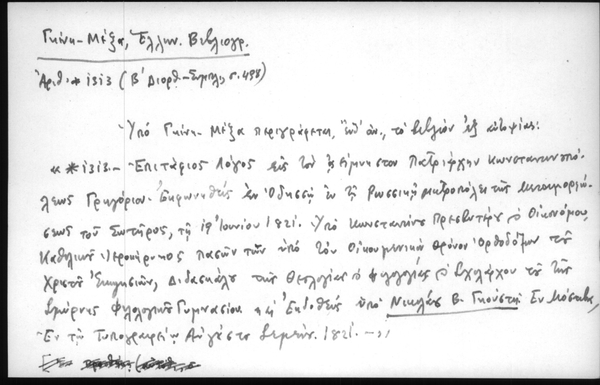 Γκίνη - Μέξα, Ἑλλην. Βιβλιογρ.
Ἀριθ. * 1313 (Β΄ Διορθ. - Συμπλ. σ. 498)
Ὑπό Γκίνη - Μέξα περιγράφεται, ὑπ' ἀρ., τό βιβλίον ἐξ αὐτοψίας:
« * 1313. - Ἐπιτάφιος Λόγος εἰς τόν ἀείμνηστον Πατριάρχην Κωνσταντινουπό-
λεως Γρηγόριον. Ἐκφωνηθείς ἐν Ὀδησσῷ ἐν τῇ Ρωσσικῇ μητροπόλει τῆς Μεταμορφώ-
σεως τοῦ Σωτῆρος, τῇ 19 Ἰουνίου 1821. Ὑπό Κωνσταντίνου Πρεσβυτέρου ὁ Οἰκονόμου,
Καθολικοῦ Ἱεροκήρυκος πασῶν τῶν ὑπό τόν Οἰκουμενικόν θρόνον Ὀρθοδόξων τοῦ
Χριστοῦ Ἐκκλησιῶν, Διδασκάλου τῆς Θεολογίας Φιλολογίας Σχολάρχου τοῦ τῆς
Σμύρνης Φιλολογικοῦ Γυμνασίου καί Ἐκδοθείς ὑπό Νικολάου Β. Γκούστη Ἐν Μόσχᾳ,
Ἐν τῇ Τυπογραφείῳ Αὐγούστου Σεμέν. 1821. - »